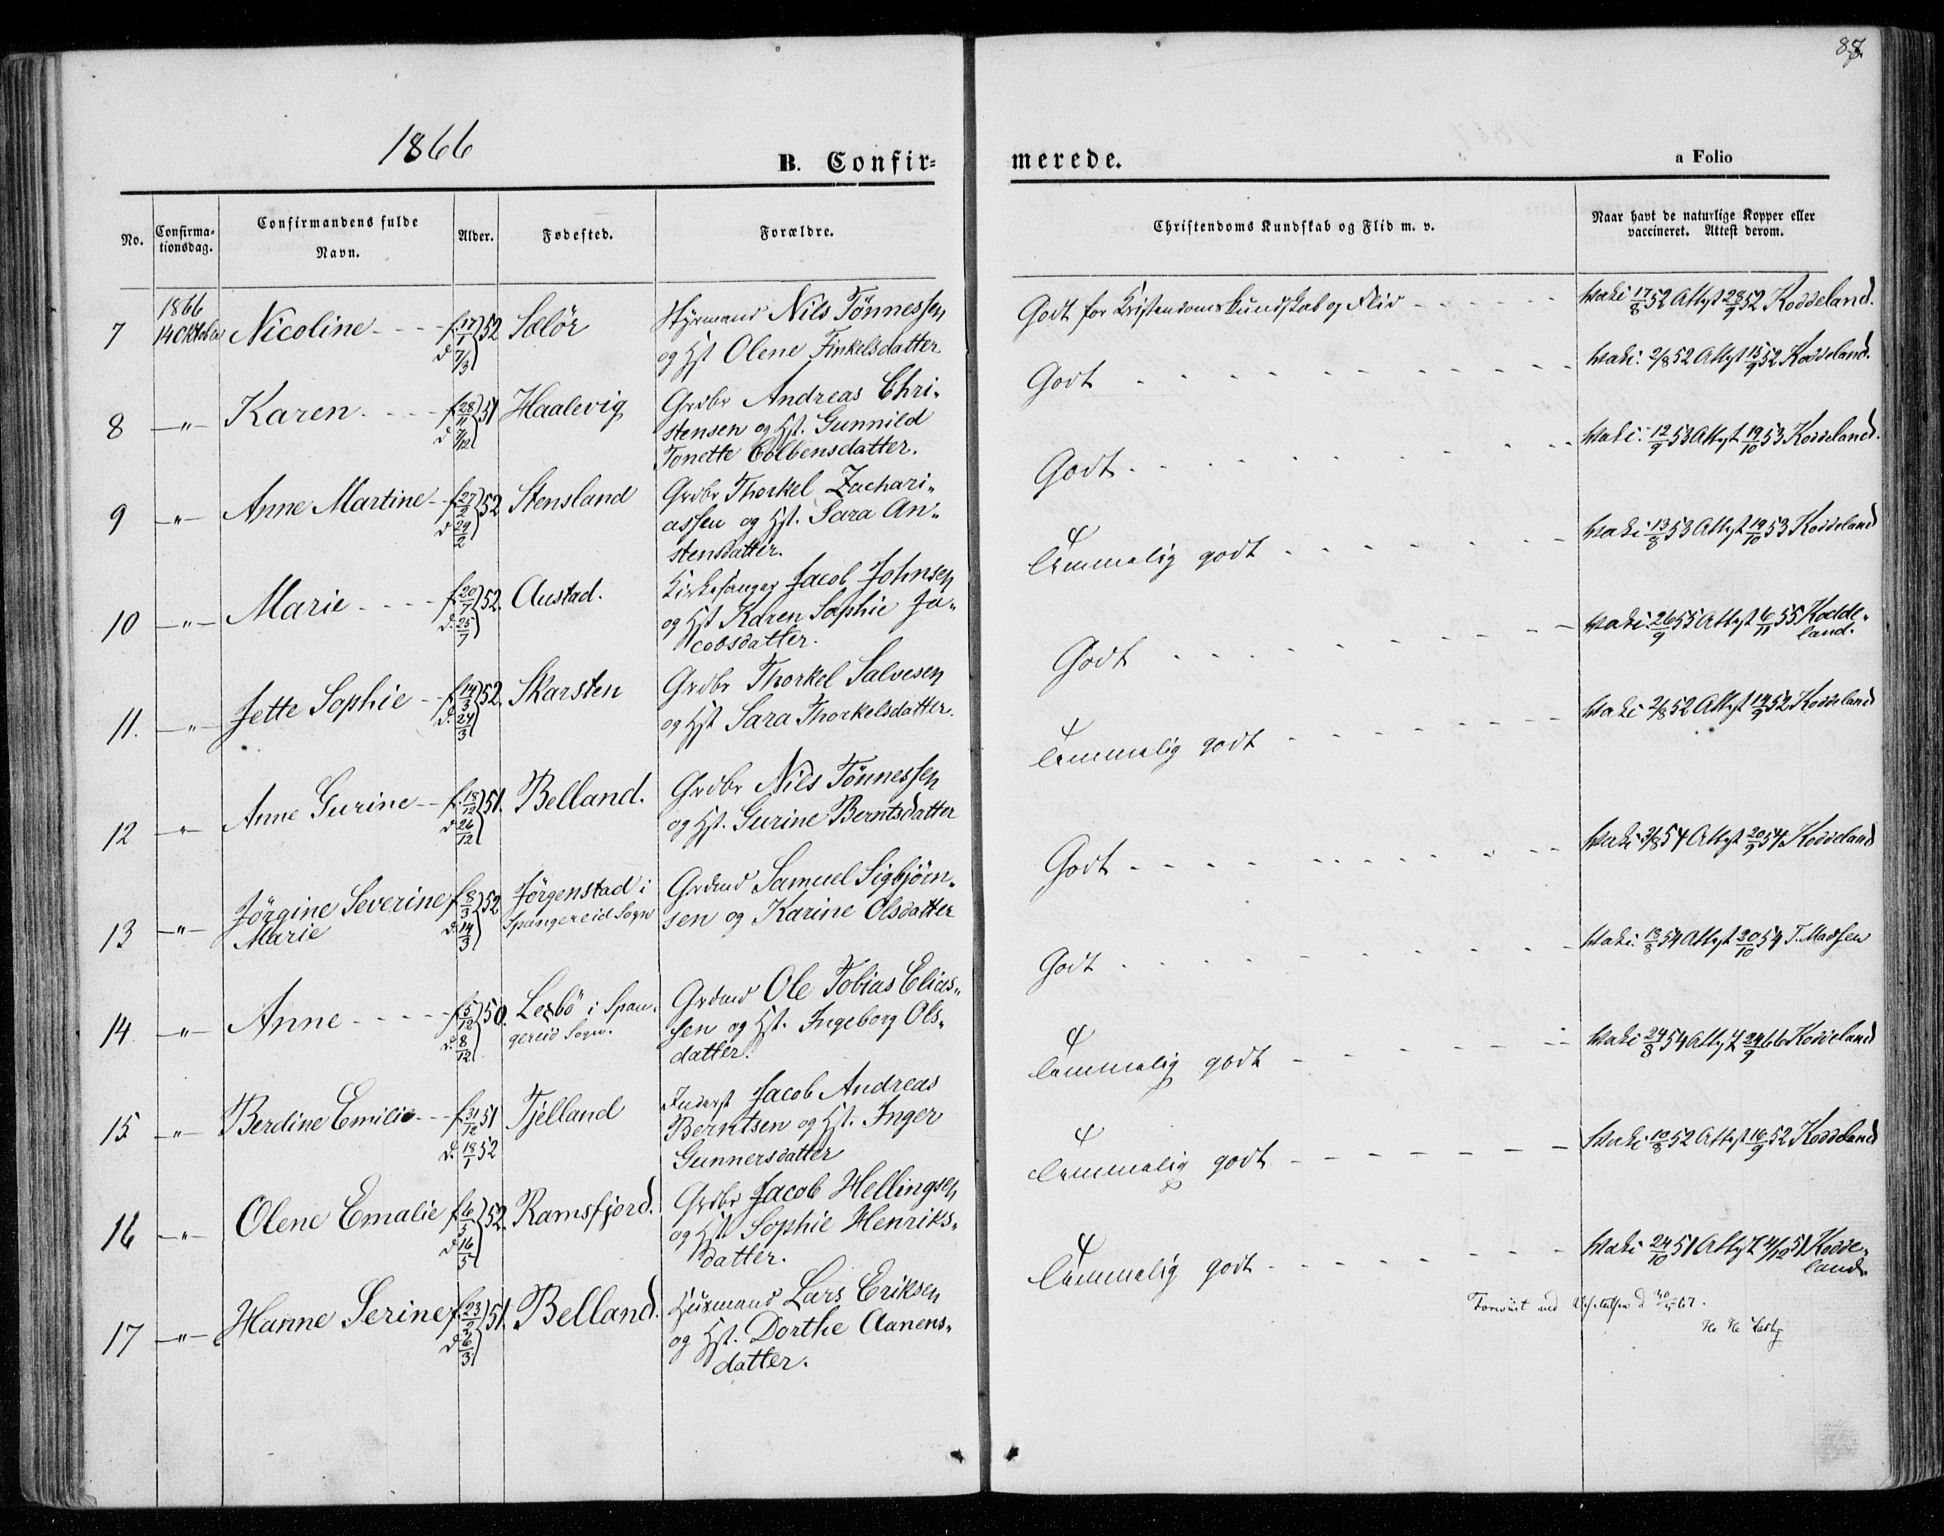 87.
1866
B. Confir=
merede.
a Folio
No.
Confirma-
tionsdag.
Confirmandens fulde
Navn.
Alder.
Fødested.
Forældre.
Christendoms Kundskab og Flid m. v.
Naar havt de naturlige Kopper eller
vaccineret. Attest derom.
7 1866 14 Oktober Nicoline f. 17/1 52 d. 7/3 Sælør Styrmand Nils Tønnessen
og Hst Olene Finkelsdatter
Godt for Kristendomskundskab og Flid
Vaki 17/8 52 Attest 28/9 52 Koddeland.
8 -"- Karen f. 28/11 51 d. 7/12 Haalevig Grdbr Andreas Chri-
stensen og Hst. Gunnild
Tonette Colbensdatter.
Godt
Vaki. 2/8 52 Attest 15/9 52 Koddeland.
9 -"- Anne Martine f. 27/2 52 d. 29/2 Stensland Grdbr Thorkel Zachari-
assen og Hst. Sara An-
stensdatter.
Godt
Vaki. 12/9 53 Attest 19/10 53 Koddeland.
10 -"- Marie f. 20/7 52. d. 25/7 Austad. Kirkesanger Jacob Johnsen
og Hst Karen Sophie Ja-
cobsdatter.
Temmelig godt
Vaki 13/8 53 Attest 19/10 53 Koddeland
11. -"- Jette Sophie f. 14/3 52. d. 24/3 Skarsten Grdbr Thorkel Salvesen
og Hst Sara Thorkelsdatter.
Godt
Vaki. 26/9 55 Attest 6/11 55 Kodde-
land.
12 -"- Anne Gurine f. 18/12 51. d. 26/12 Belland. Grdbr Nils Tønnessen
og Hst. Gurine Berntsdatter
Temmelig godt
Vaki 2/8 52 Attest 14/9 52 Koddeland
13 -"- Jørgine Severine
Marie f. 8/3 52 d. 14/3 Jørgenstad i
Spangereid Sogn Grdmd Samuel Sigbjørn-
sen og Karine Olsdatter
Godt
Vaki 3/8 54 Attest 20/9 54 Koddeland
14 -"- Anne f. 5/12 50. d. 8/12 Lesbø i Span-
gereid Sogn. Grdmd Ole Tobias Elias-
sen og Hst. Ingeborg Ols-
datter.
Godt
Vaki. 13/8 54 Attest 20/10 54 T. Madsen
15 -"- Berdine Emilie f. 31/12 51 d. 18/1 52 Tjelland Inderst Jacob Andreas
Berntsen og Hst. Inger
Gunnersdatter
Temmelig godt
Vaki 24/8 54 Attest 24/9 66 Koddeland
16 -"- Olene Emalie f. 6/5 52. d. 16/5 Ramsfjord. Grdbr Jacob Hellingsen
og Hst Sophie Henriks-
datter.
Temmelig godt
Vaki 10/8 52 Attest 16/9 52 Koddeland
17 -"- Hanne Serine f. 23/2 51. d. 6/3 Belland. Husmand Lars Eriksen
og Hst. Dorthe Aanens-
datter.
Temmelig godt
Vaki 24/10 51 Attest 4/12 51 Kodde-
land.